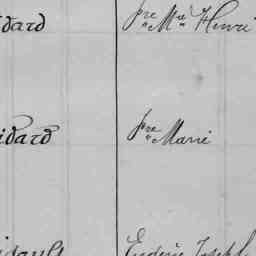 dard Pre Mie Henri
idard Pre Marie
Eugène Joseph